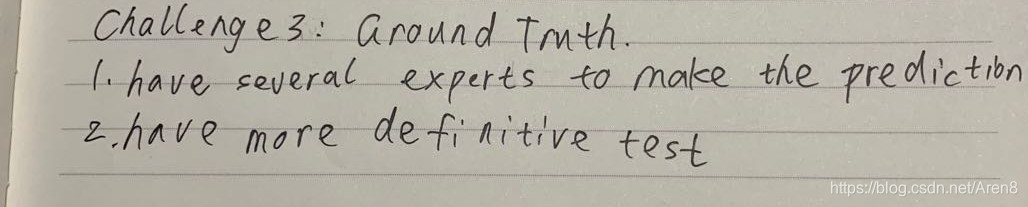 Challenge 3: Ground Truth.
1. have several experts to make the prediction
2. have more definitive test
https://blog.csdn.net/Aren8